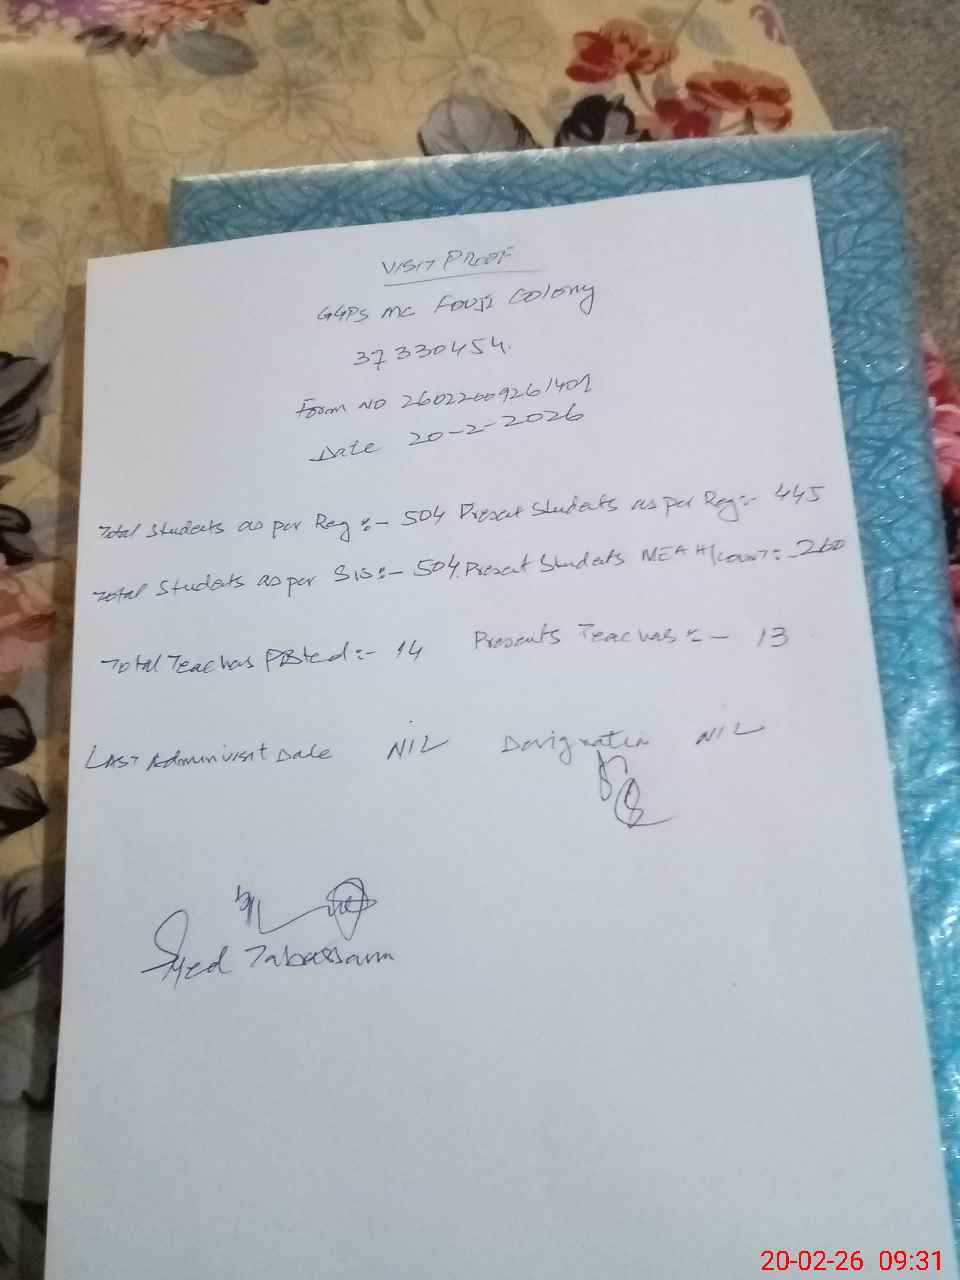 VISIT PROOF
GGPS MC FOUJI COLONY
37330454.
Form NO 26022009261401
Date 20-2-2026
Total Students as per Reg :- 504 Present Students as per Reg:- 445
Total Students as per SIS:- 504. Present Students MEA H/count:- 260
Total Teachas Posted:- 14 Presents Teachas :- 13
LAST Admin visit Date NIL Designation NIL
Syed Tabassam
20-02-26 09:31